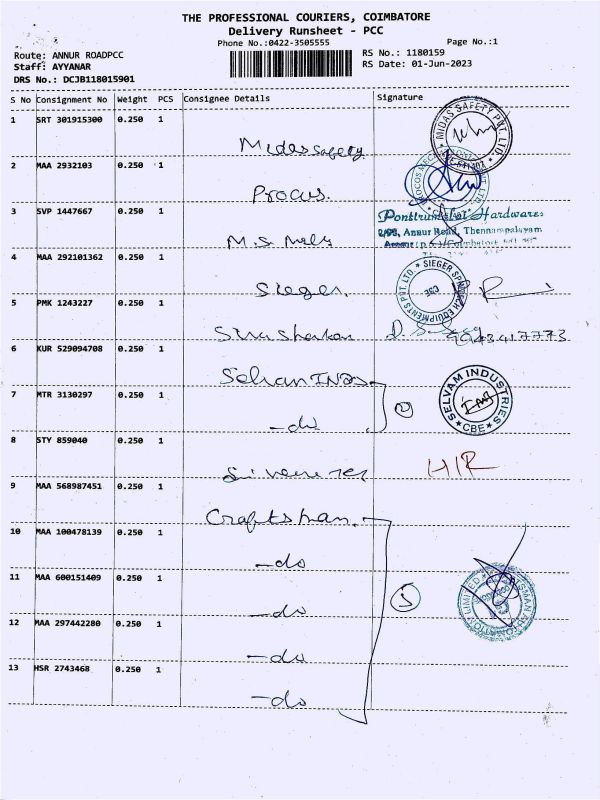 THE PROFESSIONAL COURIERS, COIMBATORE
Delivery Runsheet - PCC
Phone No.:0422-3505555
Page No.:1
Route: ANNUR ROADPCC
RS No.: 1180159
Staff: AYYANAR
RS Date: 01-Jun-2023
DRS No.: DCJB118015901
S No Consignment No Weight PCS Consignee Details Signature
1 SRT 301915300 0.250 1
Midas safety
MIDAS SAFETY PVT. LTD.
2 MAA 2932103 0.250 1
Procus.
3 SVP 1447667 0.250 1
M.S. 
Hardwares
2/99, Annur Road, Thennampalayam
4 MAA 292101362 0.250 1
Sieger.
SIEGER EQUIPMENTS PVT LTD
CBE
5 PMK 1243227 0.250 1
6 KUR 529094708 0.250 1
Selvan INDS
7 MTR 3130297 0.250 1
-do
2
SELVAM INDUSTRIES
CBE
8 STY 859040 0.250 1
H/R
9 MAA 568987451 0.250 1
Craftsman.
10 MAA 100478139 0.250 1
-do
11 MAA 600151409 0.250 1
-do
5
LIMITED
12 MAA 297442280 0.250 1
-do
13 HSR 2743468 0.250 1
-do